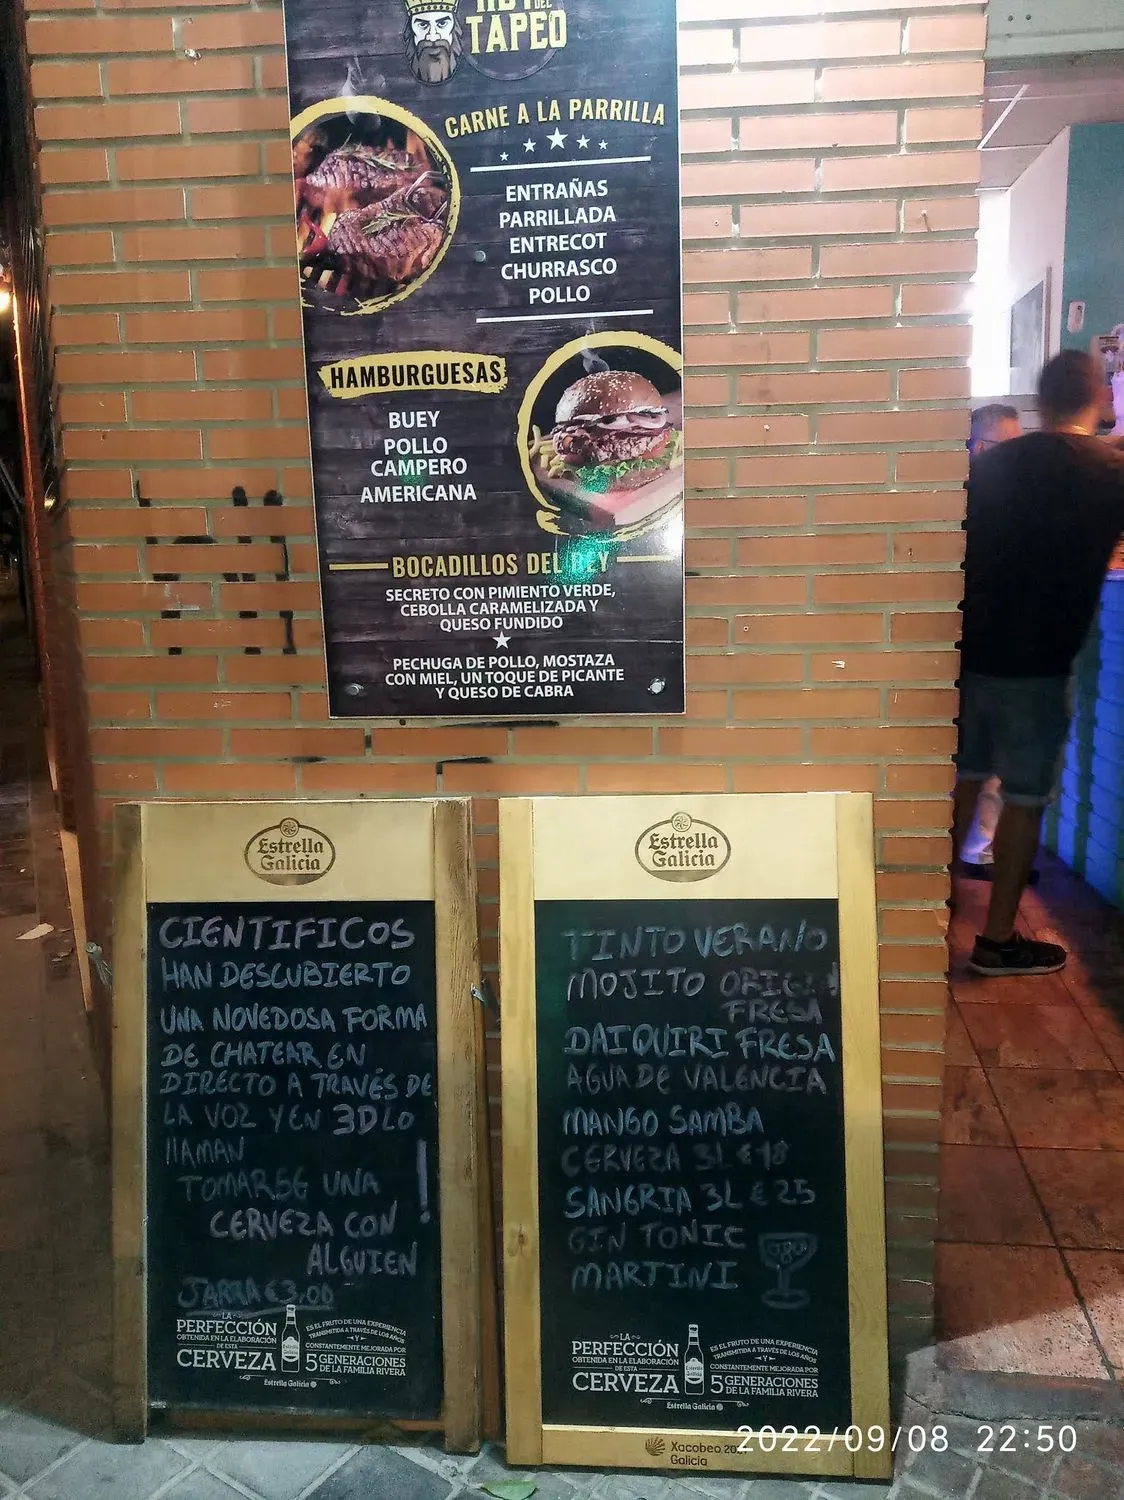 DEL
TAPEO
CARNE A LA PARRILLA
ENTRAÑAS
PARRILLADA
ENTRECOT
CHURRASCO
POLLO
HAMBURGUESAS
BUEY
POLLO
CAMPERO
AMERICANA
BOCADILLOS DEL REY
SECRETO CON PIMIENTO VERDE,
CEBOLLA CARAMELIZADA Y
QUESO FUNDIDO
PECHUGA DE POLLO, MOSTAZA
CON MIEL, UN TOQUE DE PICANTE
Y QUESO DE CABRA
Estrella
Galicia
CIENTIFICOS
HAN DESCUBIERTO
UNA NOVEDOSA FORMA
DE CHATEAR EN
DIRECTO A TRAVÉS DE
LA VOZ Y EN 3D LO
llAMAN
TOMARSE UNA
CERVEZA CON
ALGUIEN !
JARRA €3,00
LA
PERFECCIÓN
OBTENIDA EN LA ELABORACIÓN
DE ESTA
CERVEZA
ES EL FRUTO DE UNA EXPERIENCIA
TRANSMITIDA A TRAVÉS DE LOS AÑOS
Y
CONSTANTEMENTE MEJORADA POR
5 GENERACIONES
DE LA FAMILIA RIVERA
Estrella Galicia
Estrella
Galicia
TINTO VERANO
MOJITO
FRESA
DAIQUIRI FRESA
AGUA DE VALENCIA
MANGO SAMBA
CERVEZA 3L €18
SANGRIA 3L € 25
GIN TONIC
MARTINI
LA
PERFECCIÓN
OBTENIDA EN LA ELABORACIÓN
DE ESTA
CERVEZA
ES EL FRUTO DE UNA EXPERIENCIA
TRANSMITIDA A TRAVÉS DE LOS AÑOS
Y
CONSTANTEMENTE MEJORADA POR
5 GENERACIONES
DE LA FAMILIA RIVERA
Estrella Galicia
Xacobeo
Galicia
2022/09/08 22:50